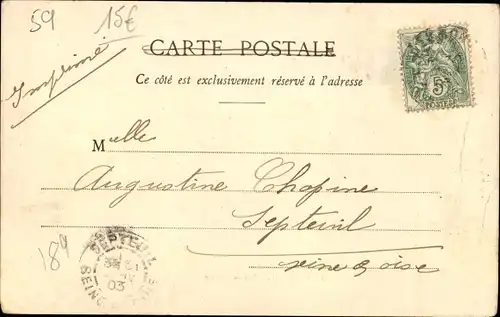 59
15€
CARTE POSTALE
Imprimé
Ce côté est exclusivement réservé à l'adresse
5c
POSTES
Melle
Augustine Chopine
Septeuil
Seine & Oise
184
SEPTEUIL
SEINE
03